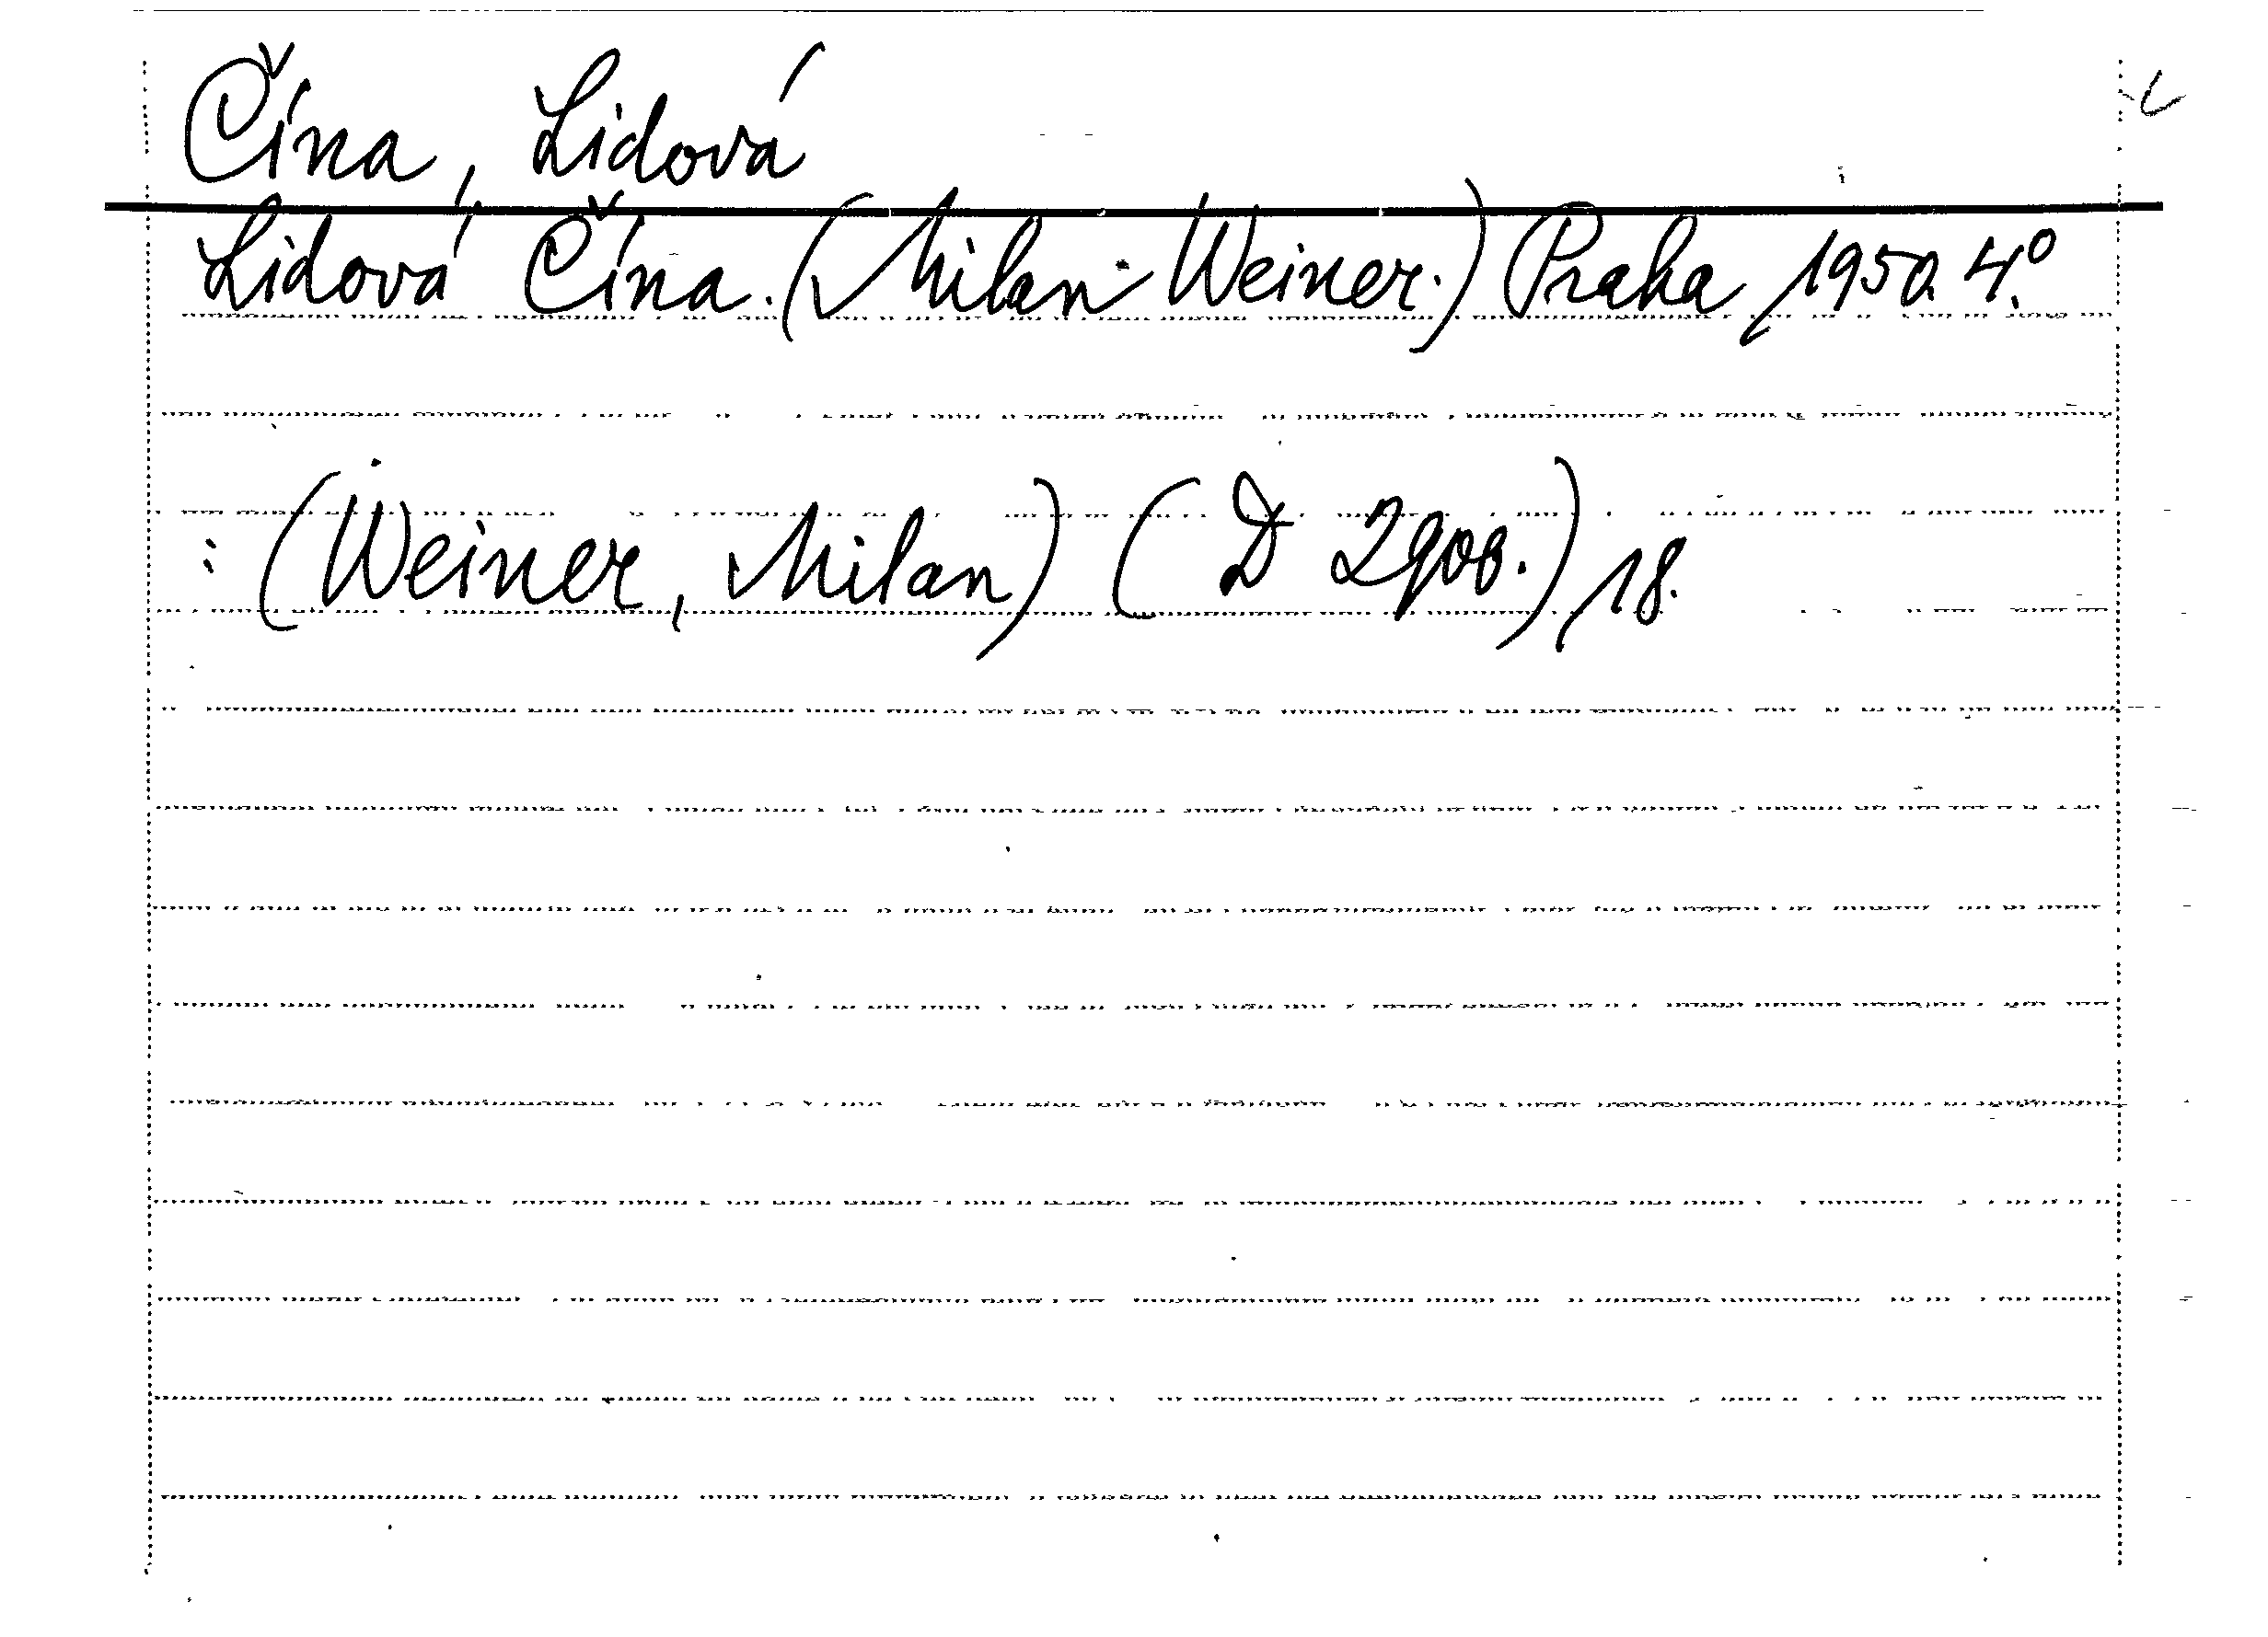 Čína, Lidová
Lidová Čína. (Milan Weiner.) Praha, 1950. 4.°
: (Weiner, Milan) (D 2900.), 18.